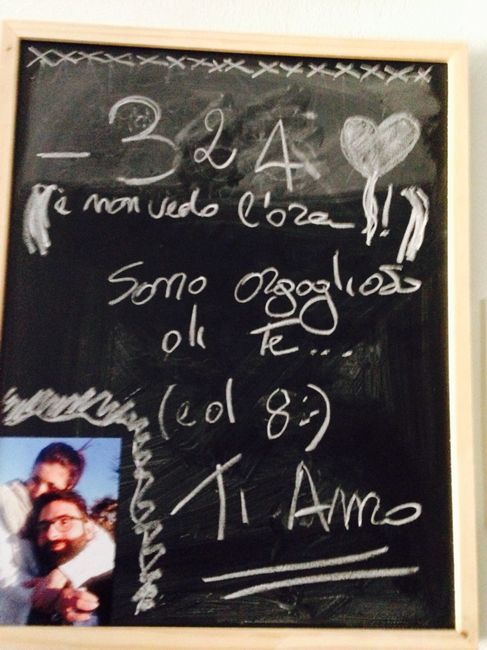 - 324
(e non vedo l'ora!!)
Sono orgoglioso
di Te...
(ed 8:-)
Ti Amo